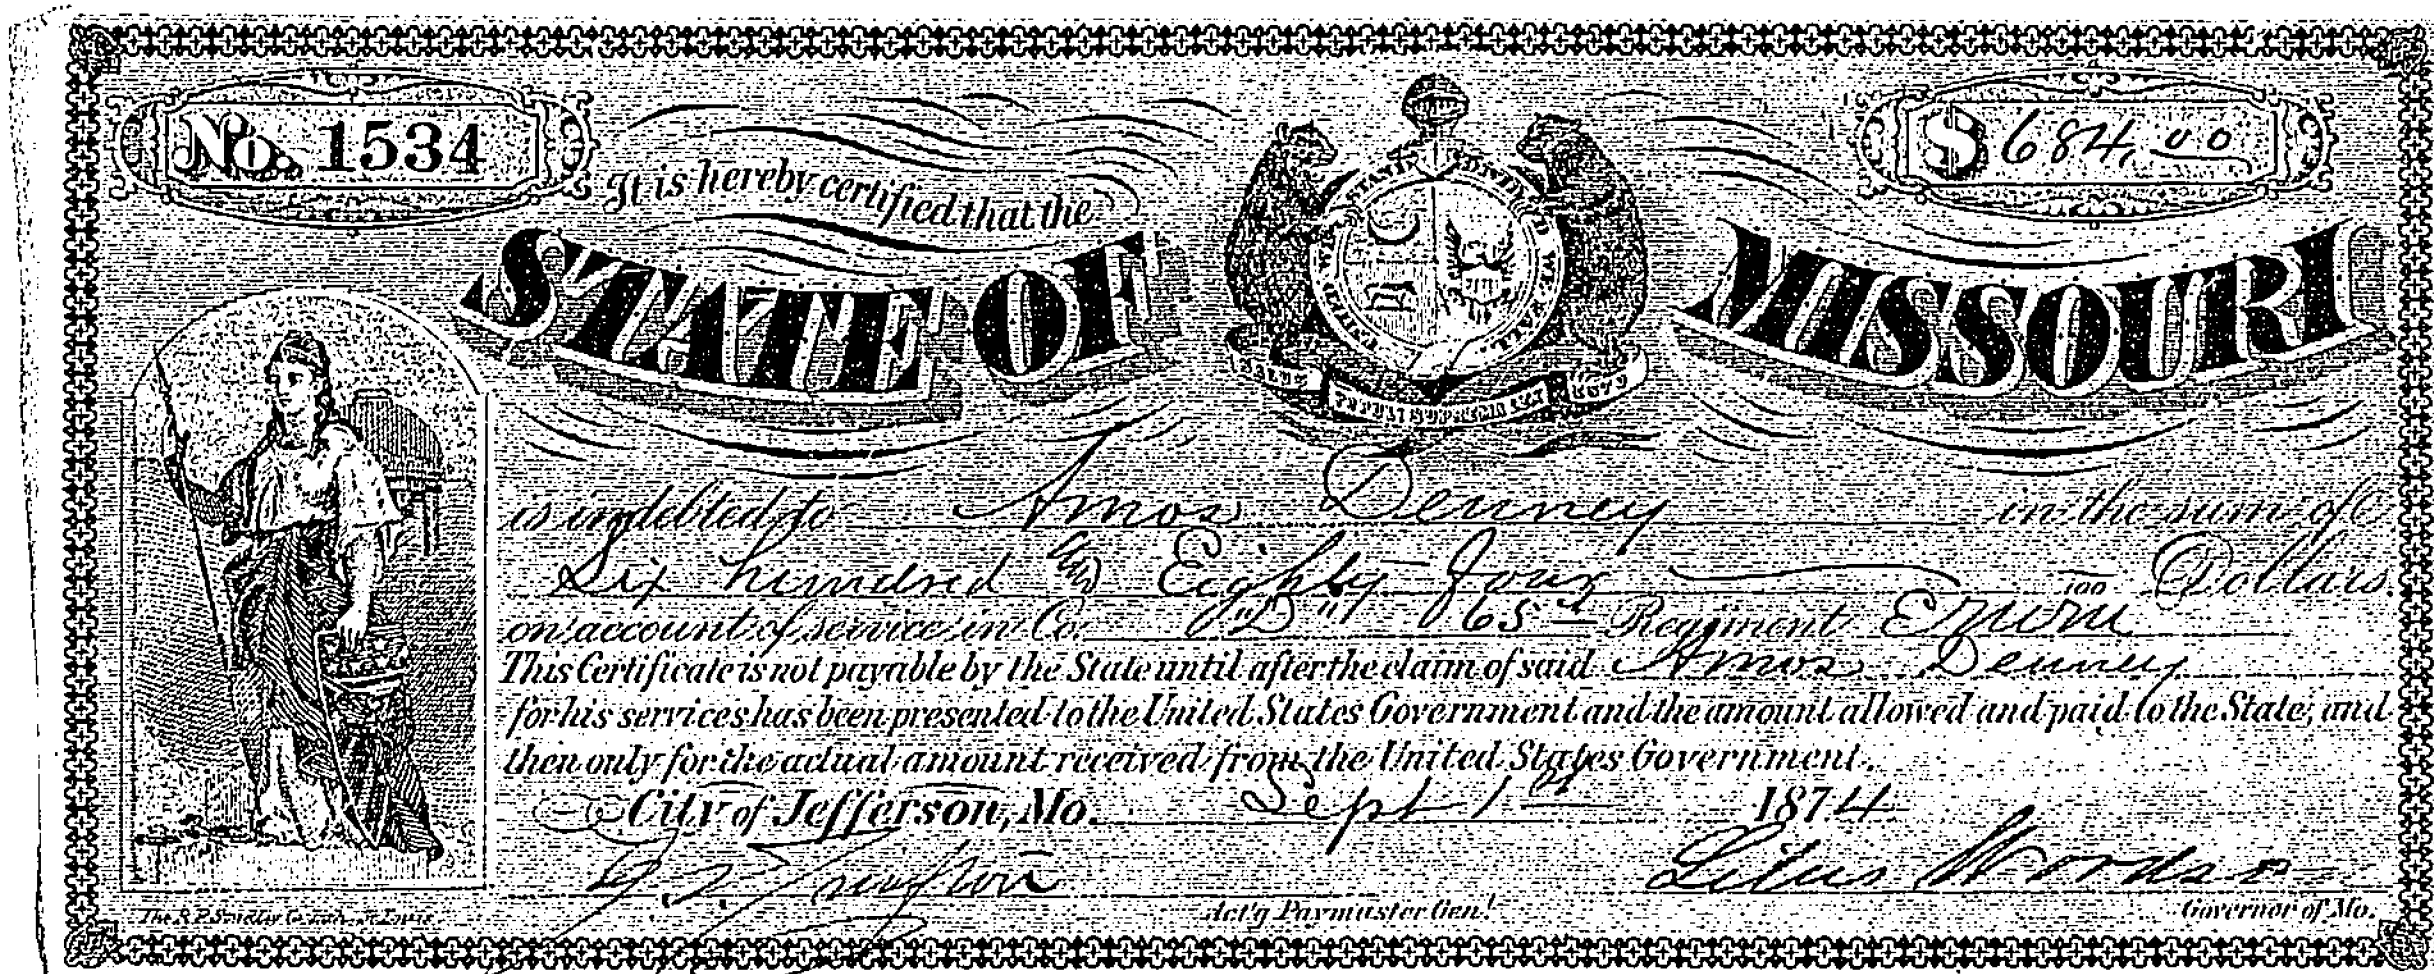 No. 1534
$ 684.00
It is hereby certified that the
STATE OF MISSOURI
is indebted to Amos Denney in the sum of
Six hundred and Eighty Four 100 Dollars
on account of service in Co. "D" 65th Regiment E M M
This Certificate is not payable by the State until after the claim of said Amos Denney
for his services has been presented to the United States Government and the amount allowed and paid to the State; and
then only for the actual amount received from the United States Government.
City of Jefferson, Mo. Sept 1st 1874
Silas Woodson
Act'g Paymaster Gen'l
Governor of Mo.